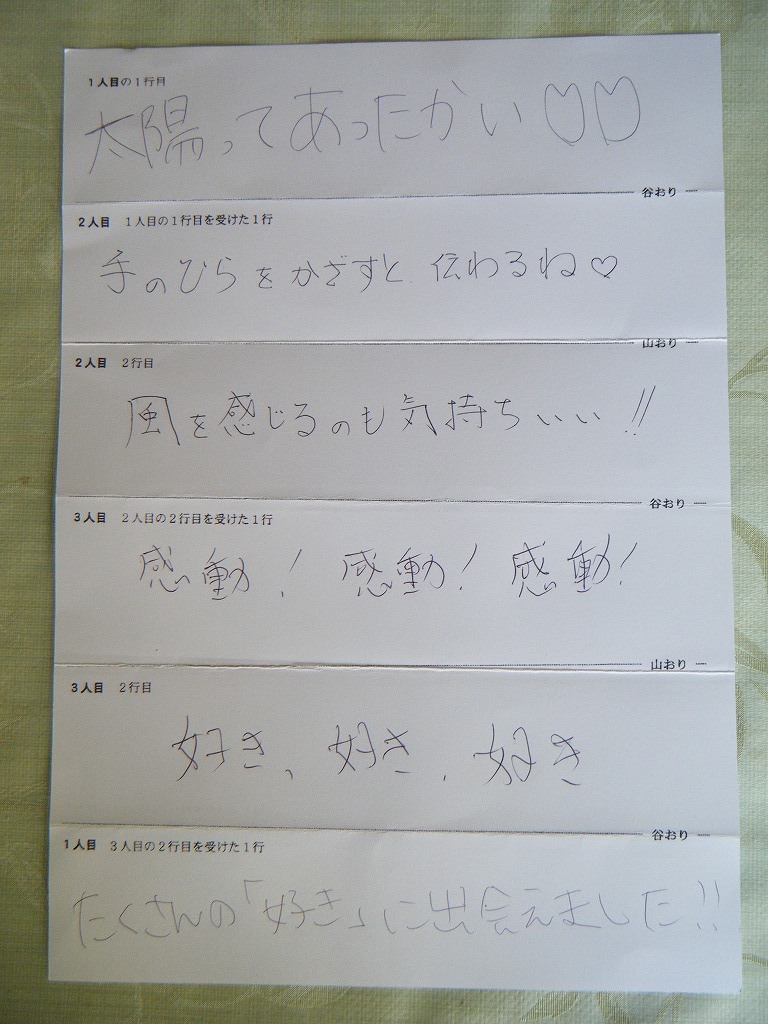 1人目の1行目
太陽ってあったかい♡♡
谷おり
2人目 1人目の1行目を受けた1行
手のひらをかざすと、伝わるね♡
山おり
2人目 2行目
風を感じるのも気持ちいい!!
谷おり
3人目 2人目の2行目を受けた1行
感動! 感動! 感動!
山おり
3人目 2行目
好き、好き、好き
谷おり
1人目 3人目の2行目を受けた1行
たくさんの「好き」に出会えました!!